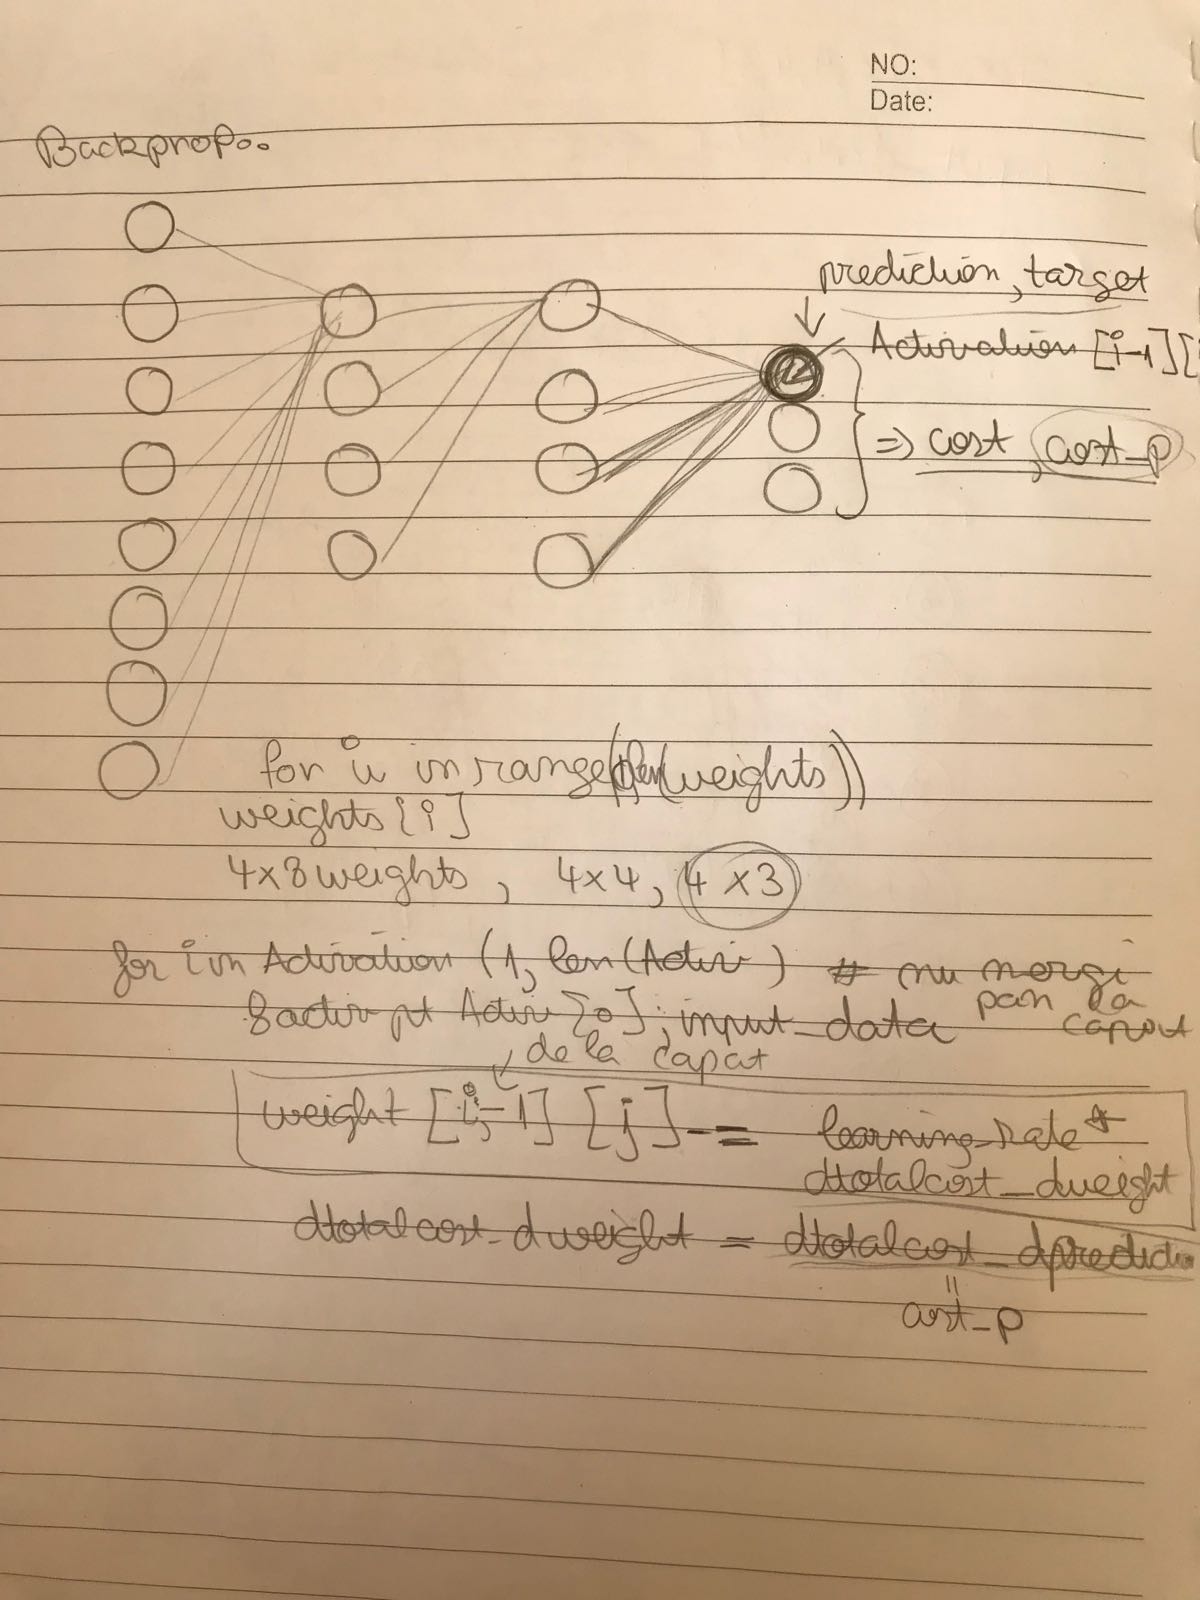 NO:
Date:
Backprop..
prediction, target
Activation [i-1][
=> cost, cost_p
for i in range(1, len(weights))
weights [i]
4x8 weights, 4x4, 4x3
for i in Activation (1, len(Activ) # nu mergi
pan la
Activ [0]; input_data capat
de la capat
weight [i,-1] [j] -= learning_rate *
dtotalcost_dweight
dtotalcost_dweight = dtotalcost_dpredictio
=
cost_p